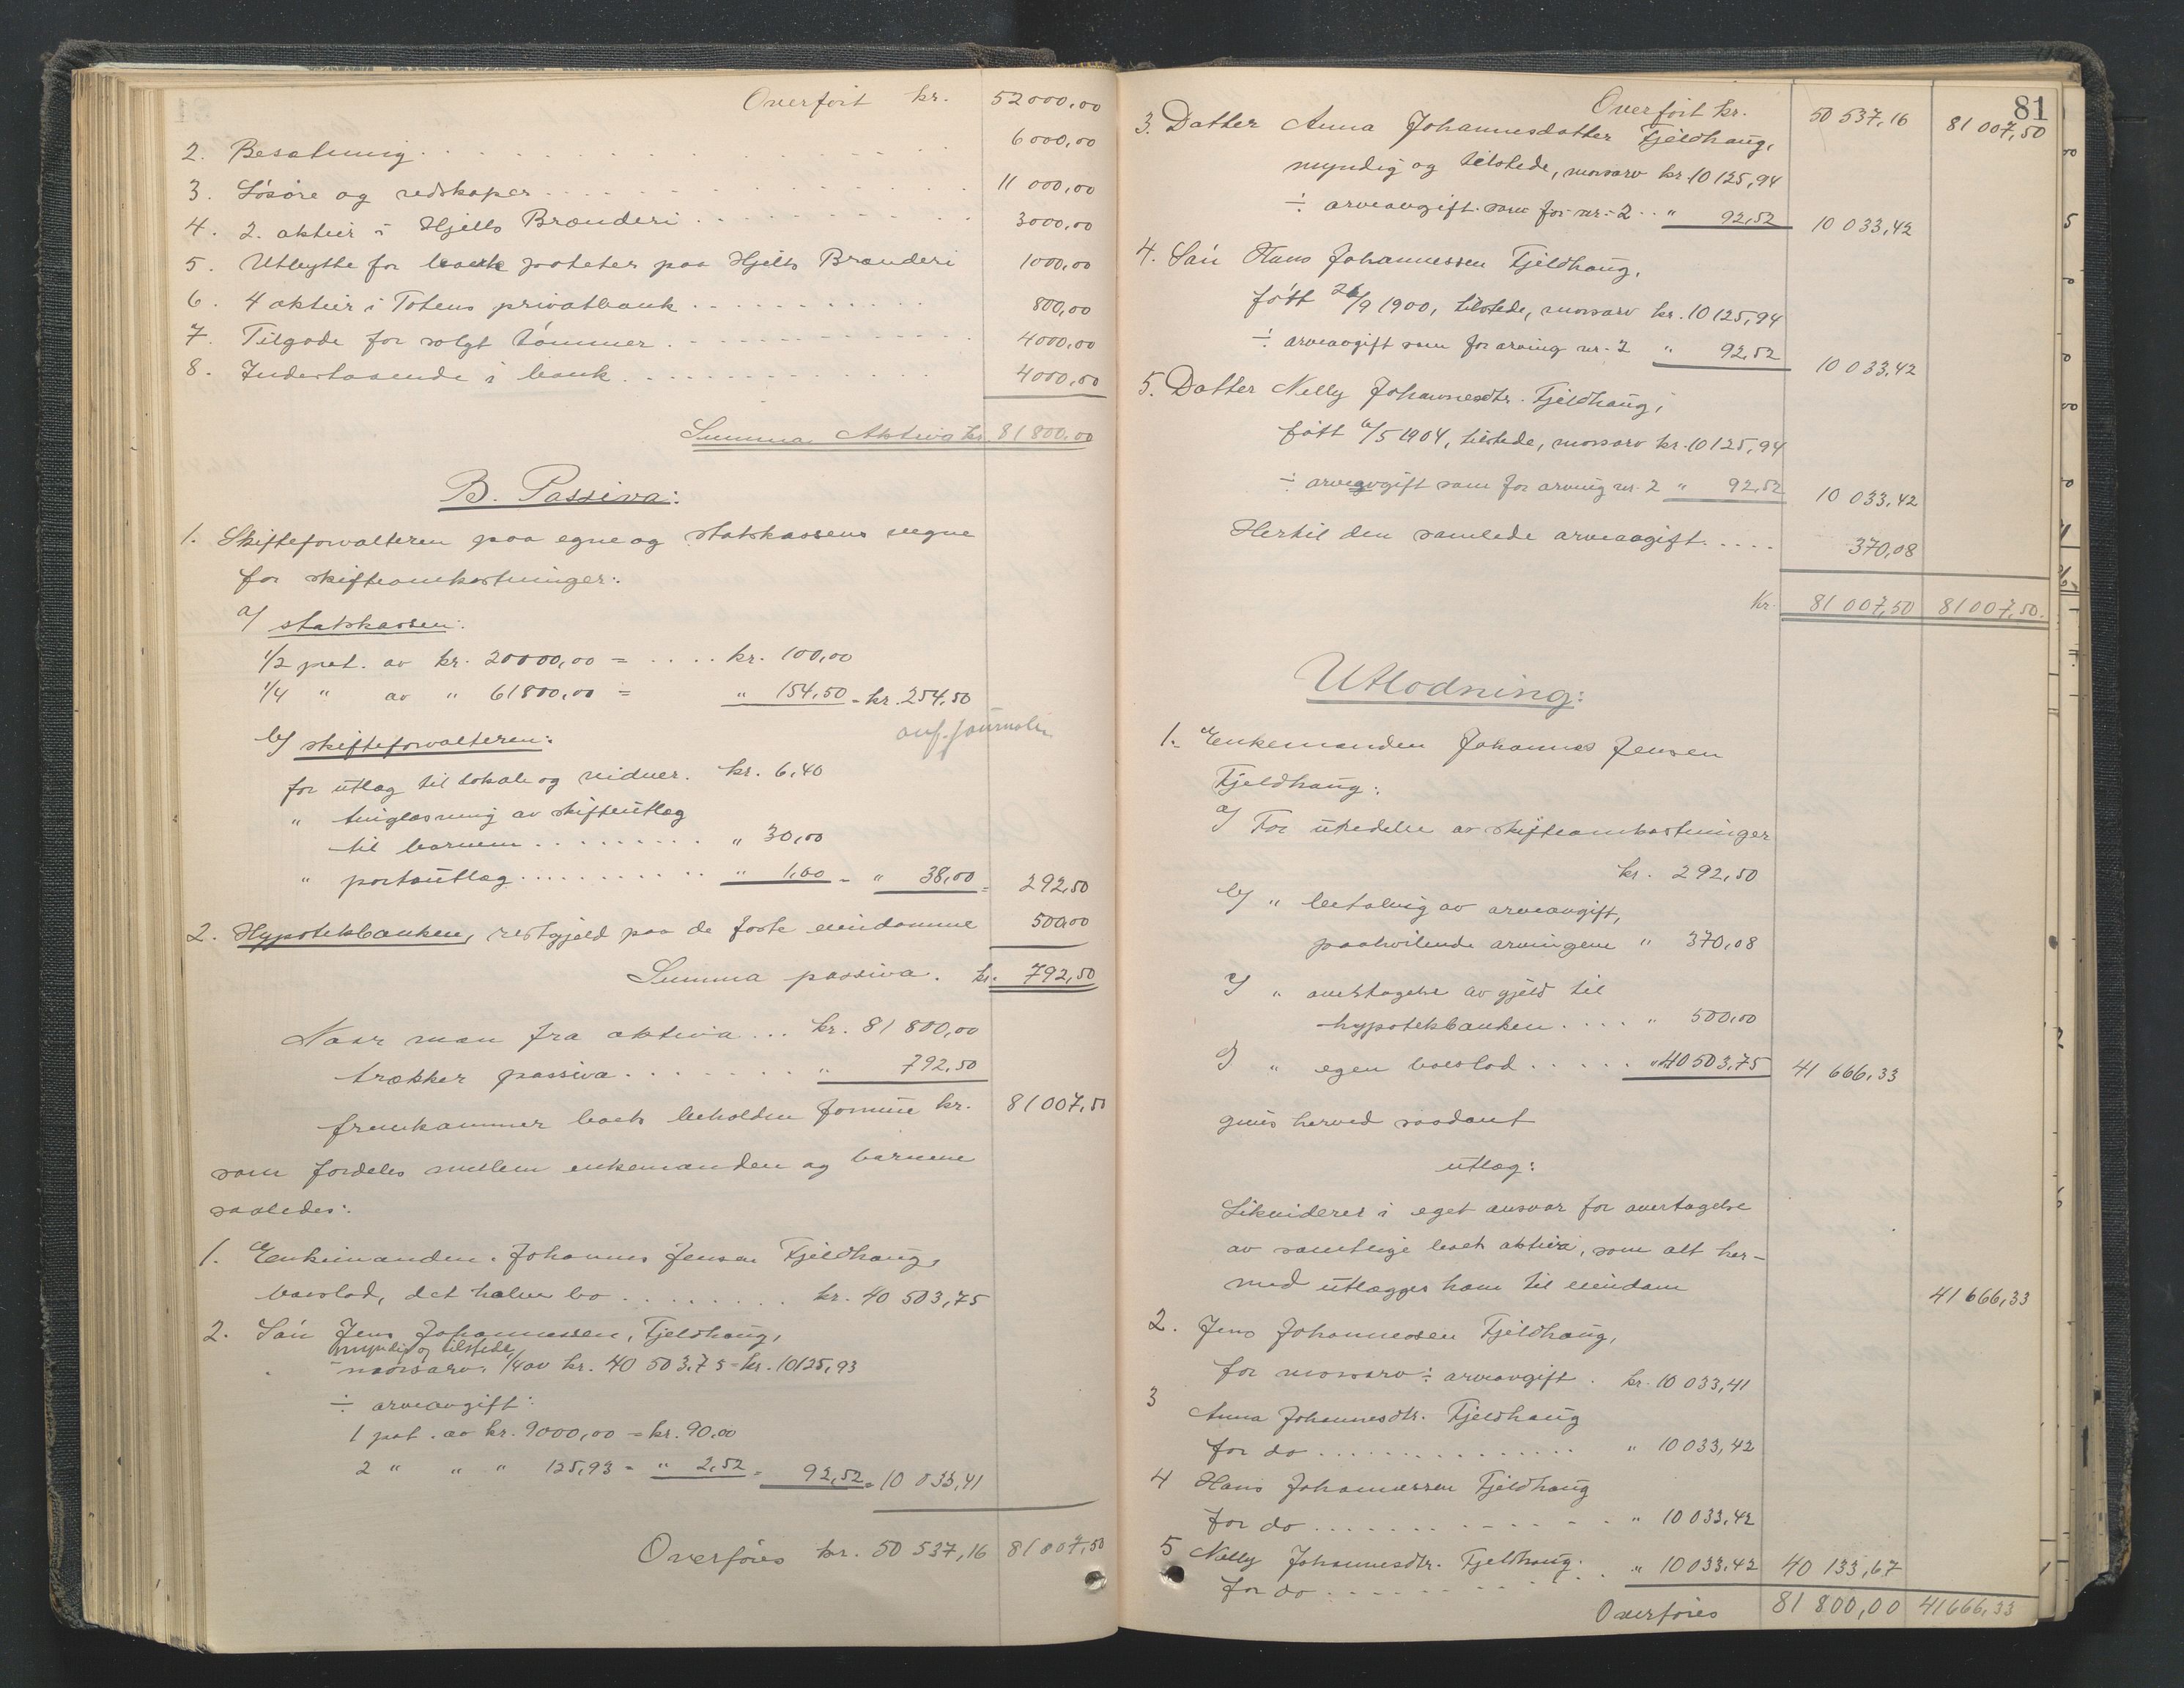 Overført kr. 52000,00
2. Besætning . . . . 6000,00
3. Løsøre og redskaper . . . . 11 000,00
4. 2 aktier i Hjells Brænderi . . . . 3000,00
5. Utbytte for poteter paa Hjells Brænderi 1000,00
6. 4 aktier i Totens privatbank . . . . 800,00
7. Tilgode for solgt tømmer . . . . 4000,00
8. Indestaaende i bank . . . . 4000,00
Summa Aktiva kr. 81 800,00
B. Passiva:
1. Skifteforvalteren paa egne og statskassens vegne
for skifteomkostninger:
a/ statskassen:
1/2 pct. av kr. 20000,00 = . . . . kr. 100,00
1/4 " av " 61800,00 = " 154,50 = kr. 254,50
b/ skifteforvalteren:
for utlæg til lokale og vidner. kr. 6,40
" tinglæsning av skifteutlæg
til barnem . . . . " 30,00
" portoutlæg . . . . " 1,60 = " 38,00 = 292,50
2. Hypotekbanken, restgjeld paa de faste eiendomme 500,00
Summa passiva. kr. 792,50
Naar man fra aktiva . . . kr. 81 800,00
trækker passiva . . . . " 792,50
fremkommer boets beholdne formue kr. 81 007,50
som fordeles mellem enkemanden og barnene
saaledes:
1. Enkemanden Johannes Jensen Fjeldhaug,
boeslod, det halve bo . . . . kr. 40 503,75
2. Søn Jens Johannessen Fjeldhaug,
myndig og tilstede,
morsarv 1/4 av kr. 40 503,75 = kr. 10125,93
÷ arveavgift:
1 pct. av kr. 9000,00 = kr. 90,00
2 " " " 125,93 = " 2,52 = 92,52 = 10 033,41
Overføres kr. 50 537,16 81 007,50
81
Overført kr. 50 537,16 81 007,50
3. Datter Anna Johannesdatter Fjeldhaug,
myndig og tilstede, morsarv kr. 10 125,94
÷ arveavgift som for nr. 2 . . " 92,52 10 033,42
4. Søn Hans Johannessen Fjeldhaug,
født 26/9 1900, tilstede, morsarv kr. 10 125,94
÷ arveavgift som for arving nr. 2 " 92,52 10 033,42
5. Datter Nelly Johannesdtr. Fjeldhaug,
født /5 1904, tilstede, morsarv kr. 10 125,94
÷ arveavgift som for arving nr. 2 " 92,52 10 033,42
Hertil den samlede arveavgift . . . . 370,08
Kr. 81 007,50 81 007,50.
Utlodning:
1. Enkemanden Johannes Jensen
Fjeldhaug:
a/ For utredelse av skifteomkostninger
kr. 292,50
b/ " betaling av arveavgift,
paahvilende arvingene " 370,08
c/ " overtagelse av gjeld til
hypotekbanken . . . . " 500,00
d/ " egen boeslod . . . . " 40 503,75 41 666,33
gives herved saadant
utlæg:
Likvideres i eget ansvar for overtagelse
av samtlige boets aktiva, som alt her-
med utlægges ham til eiendom 41 666,33
2. Jens Johannessen Fjeldhaug,
for morsarv ÷ arveavgift . kr. 10 033,41
3 Anna Johannesdtr. Fjeldhaug
for do . . . . " 10 033,42
4 Hans Johannessen Fjeldhaug
for do . . . . " 10 033,42
5 Nelly Johannesdtr. Fjeldhaug.
for do . . . . " 10 033,42 40 133,67
Overføres 81 800,00 41 666,33